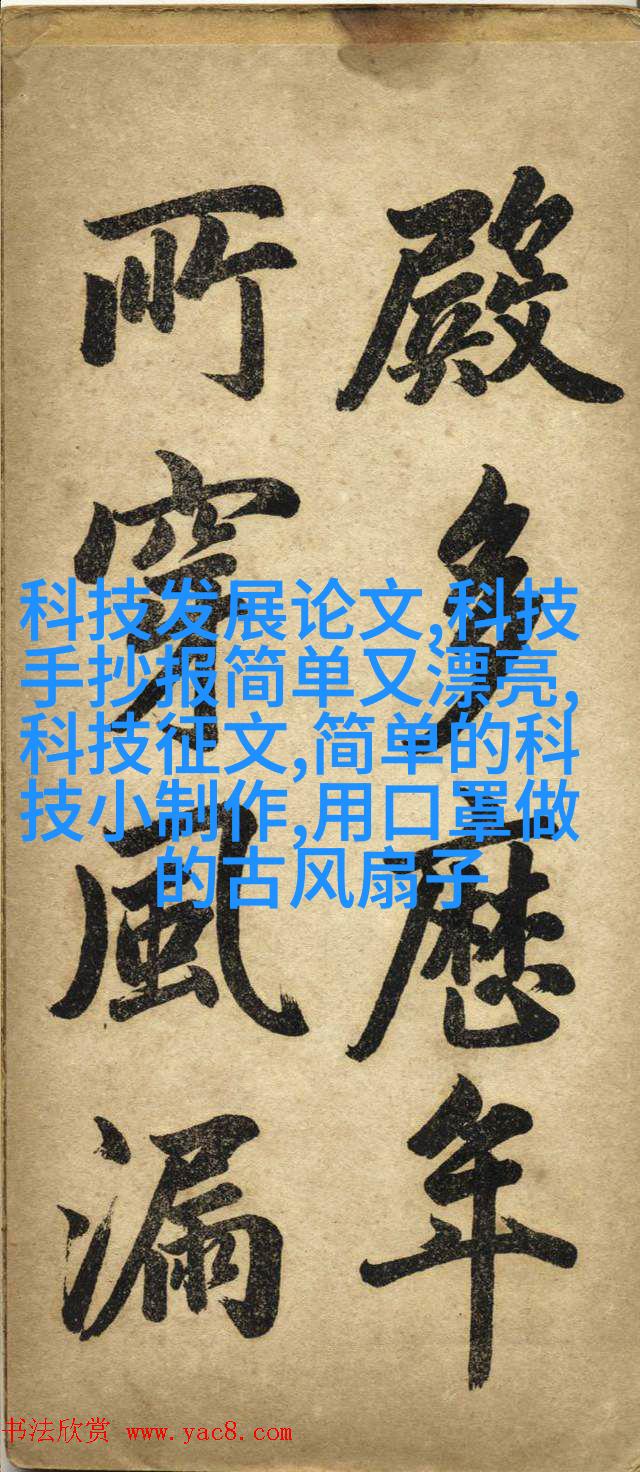 殿多歷年
所穿風漏
科技发展论文,科技
手抄报简单又漂亮,
科技征文,简单的科
技小制作,用口罩做
的古风扇子
书法欣赏 www.yac8.com